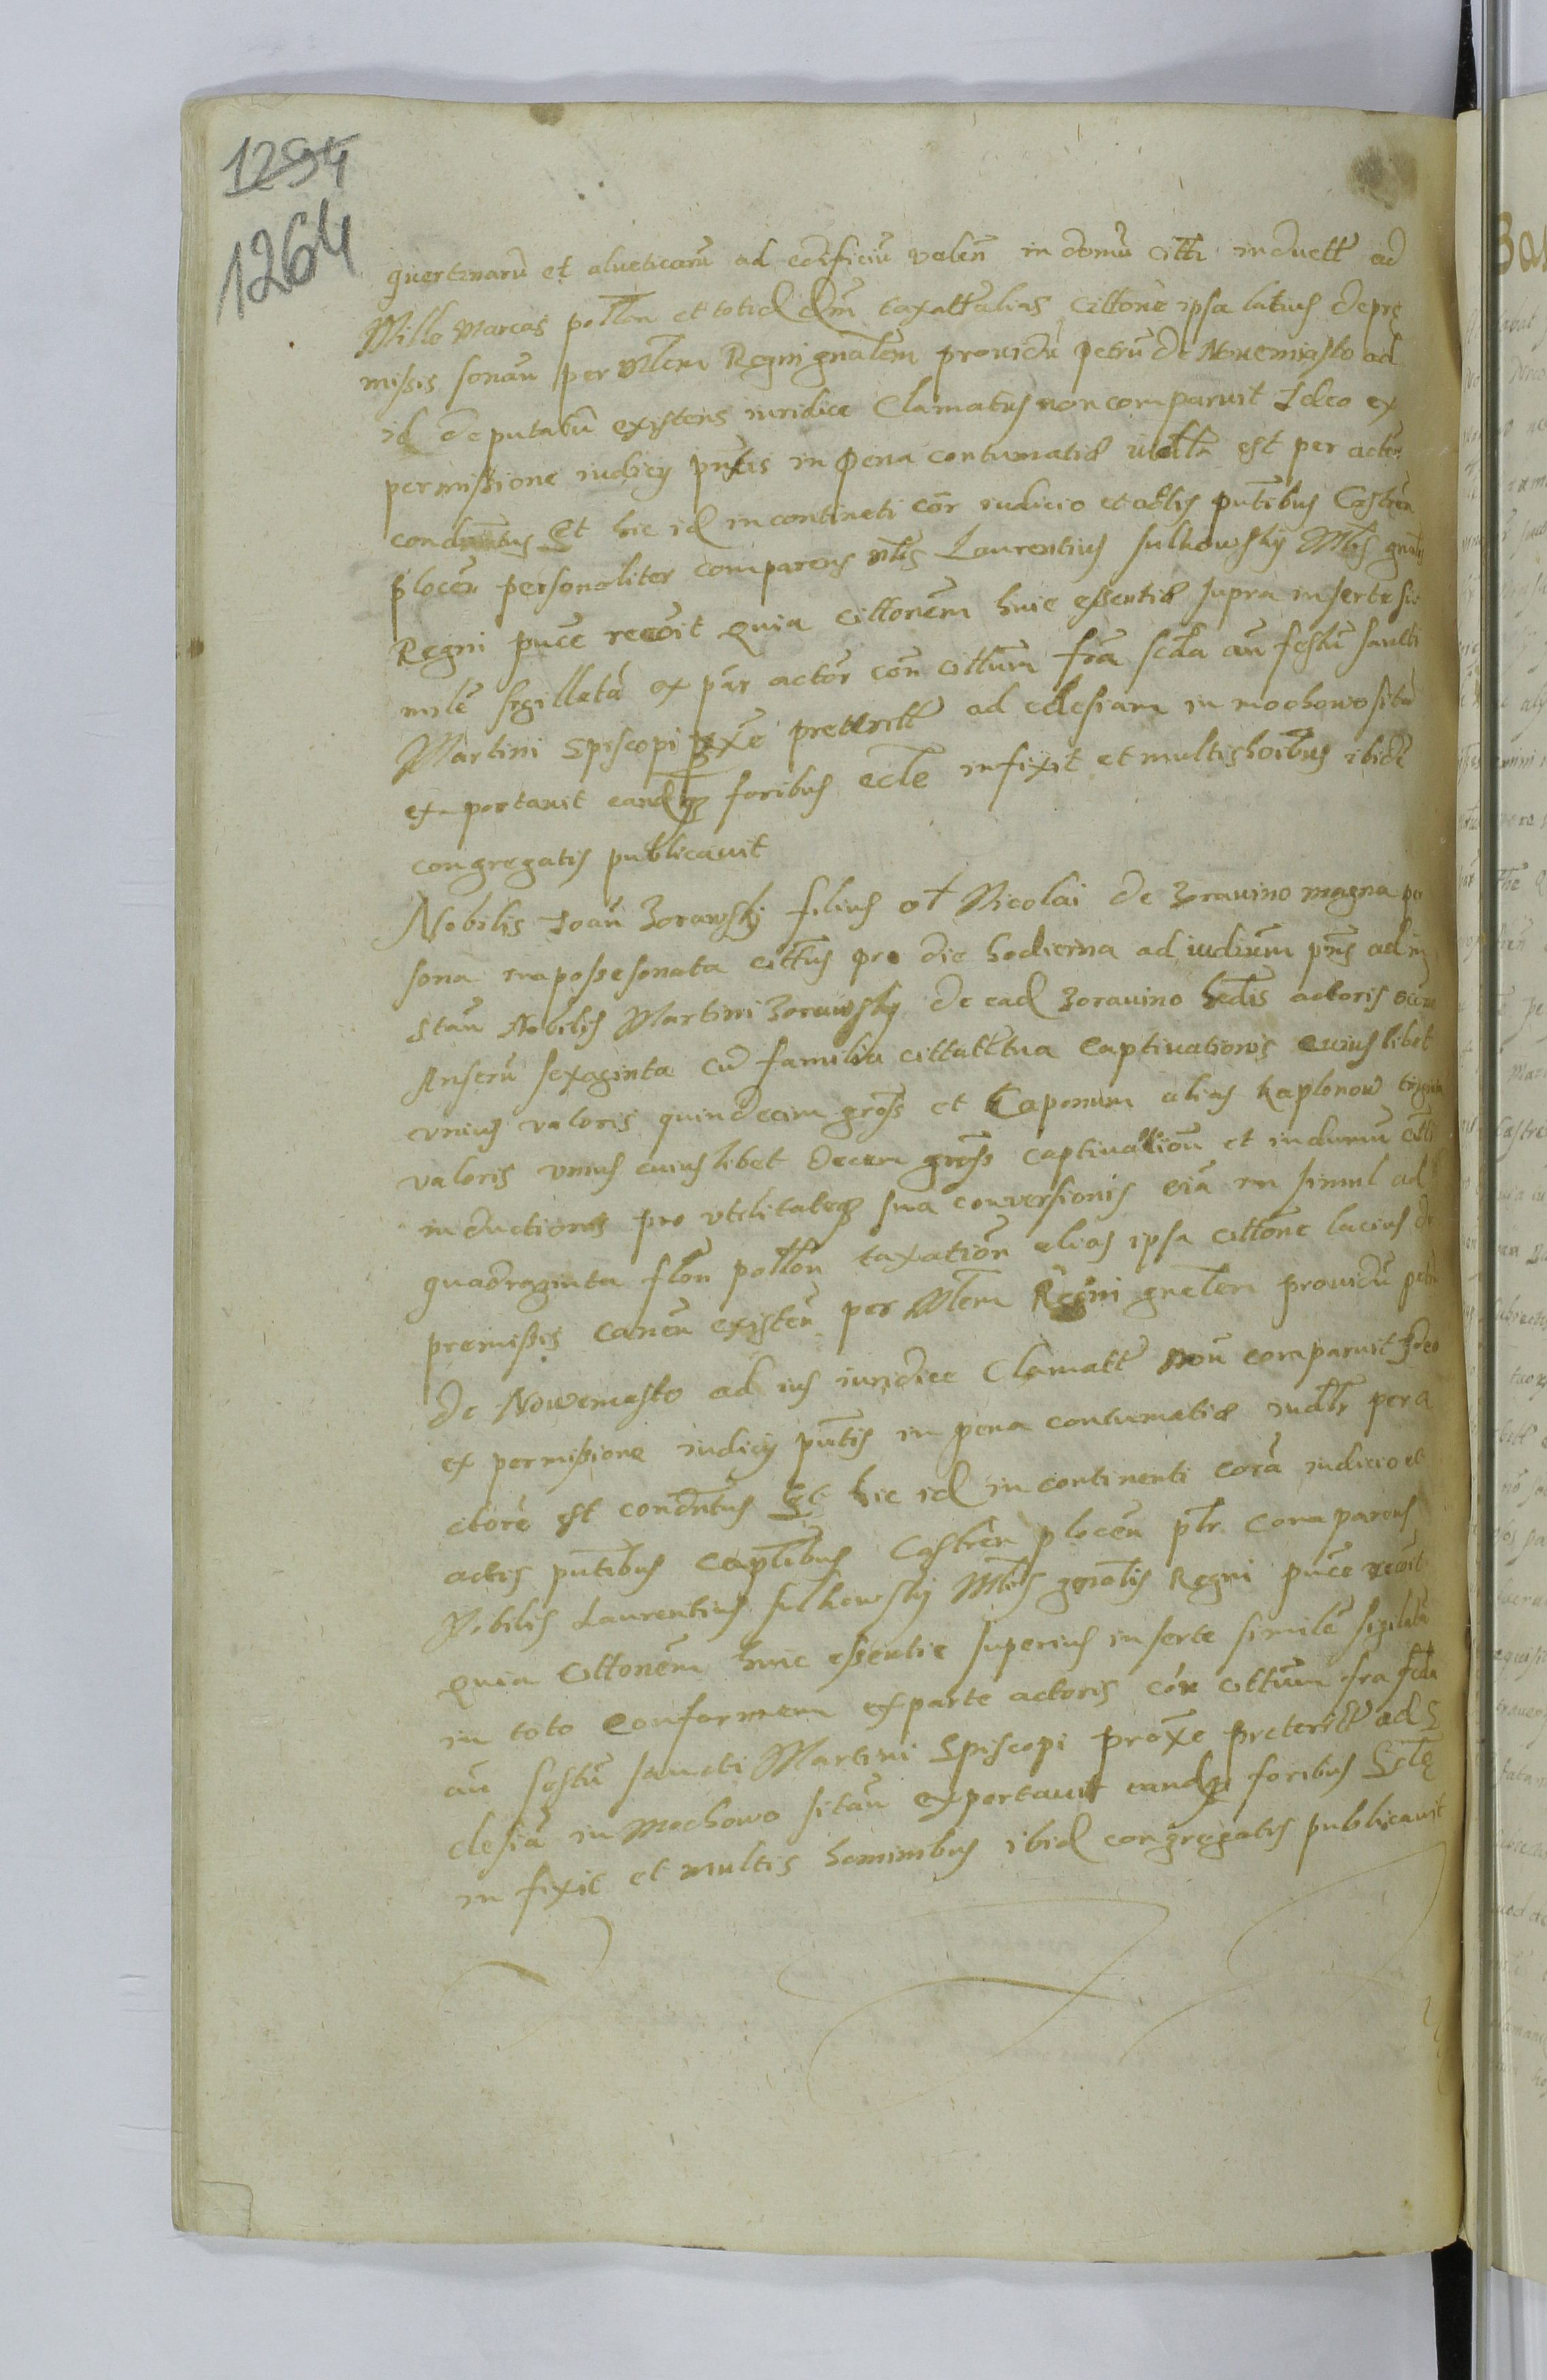 1294
1264
quertinarũ et alueticarũ ad edificiũ valeñ in domũ citti inductt ad
Mille Marcas pollõn et totid dm̃ taxatt alias cittone ipsa latius depre
missis sonañ per mltem Regni gnalem prouidũ petrũ de Nouemiasto ad
id deputatũ existens iuridice Clamatus non comparuit Ideo ex
permissione iudicy pñtis in pena contumatiæ est per actor
condmñtus Et hic id in continẽti cor iudicio et actis pñtibus Castreñ
ploceñ personaliter comparens mltis Laurentius sulkowsky Mltis gnalis
Regni puce recoit Quia cittonẽm huic essentiæ supra inserte si
milẽ sigillatã ex par actor con cittũm fr̃a scda añ festũ sancti
Martini Episcopi pxẽ preteritt ad eclesiam in mochowo sitã
exportauit eandqz foribus ecle infixit et multis hoĩbus ibidẽ
congregatis publicauit
Nobilis Ioañ Zorawsky filius ot Nicolai de Zorauino magna per
sona impossesonata cittus pro die hodierna ad iudium pñs ad in
stañ Nobilis Martini Zorawsky de ead Zorauino hedis actoris
Anserũ sexaginta cũ familia cittatt tua Captiuationis cuius libet
vnius valoris quindecim gros et Caponum alias kaplonow triginta
valoris vnius cuius libet decem gross captiuationũ et in dumũ citti
inductionis pro vtilitateqz sua conuersionis oiã in simul ad
quadraginta flõn pollõn taxatiõn alias ipsa cittone lacius de
premissis caneñ existeñ per Mltem Regni gnalem prouidũ petrũ
de Nowemasto ad ius iuridice Clamatt noñ comparuit Ideo
ex permissione iudicy pñtis in pena contumatiæ iudltr per a
ctorẽ est condntus Et hic id in continenti corã iudicio et
actis pñtibus captibus Castreñ ploceñ pltr. comparens
Nobilis Laurentius sulkowsky Mltis gnalis Regni puce recoit
Quia Cittonẽm huic essentie superius inserte similẽ sigilatã
in toto Conformem ex parte actoris cor cittũm fra scda
añ festũ sancti Martini Episcopi proxẽ preteritt ad E
clesiã in Mochowo sitañ exportauit eandqz foribus Ecle
in fixit et multis hominibus ibid congregatis publicauit